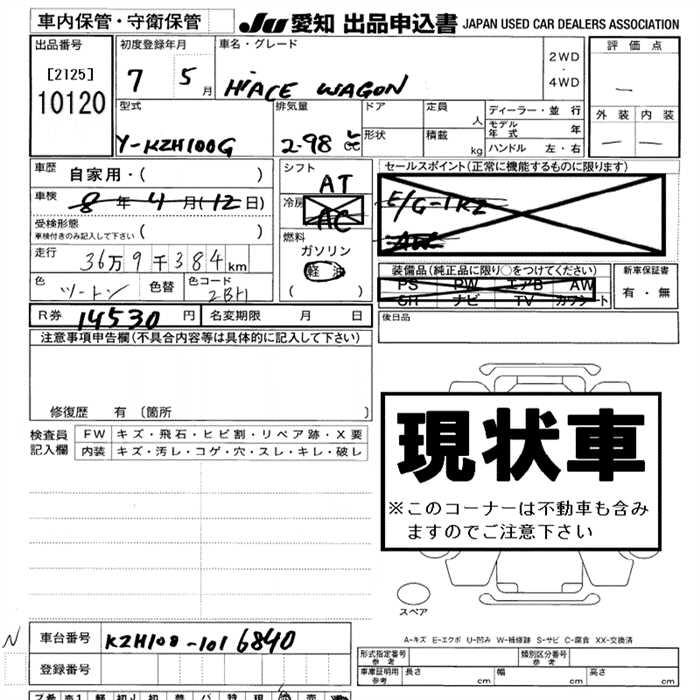 車内保管・守衛保管
JU 愛知 出品申込書 JAPAN USED CAR DEALERS ASSOCIATION
出品番号
[2125]
10120
初度登録年月
7 5 月
車名・グレード
HiACE WAGON
2WD
・
4WD
評価点
—
外装 内装
— —
型式
Y-KZH100G
排気量
2.98
ドア
形状
定員 人
積載 kg
ディーラー・並行
モデル年式 年
ハンドル 左・右
車歴 自家用・( )
車検 8年4月(12日)
受検形態
車検付きのみ記入して下さい ( )
走行 36万9千384km
色 ツートン 色替 色コード 2BH
シフト AT
冷房 AC
燃料
ガソリン
軽
( )
セールスポイント(正常に機能するものに限ります)
E/G-1KZ
AW
装備品(純正品に限り○をつけてください)
PS PW エアB AW
SR ナビ TV カワシート
新車保証書
有・無
R券 14530 円 名変期限 月 日
後日品
注意事項申告欄(不具合内容等は具体的に記入して下さい)
修復歴 有 〔箇所 〕
検査員記入欄
FW キズ・飛石・ヒビ割・リペア跡・X要
内装 キズ・汚レ・コゲ・穴・スレ・キレ・破レ
現状車
※このコーナーは不動車も含み
ますのでご注意下さい
スペア
A-キズ E-エクボ U-凹み W-補修跡 S-サビ C-腐食 XX-交換済
N
車台番号 KZH100-1016840
登録番号
型式指定番号
参考
類別区分番号
参考
車庫証明用
参考
長さ cm 幅 cm 高さ cm